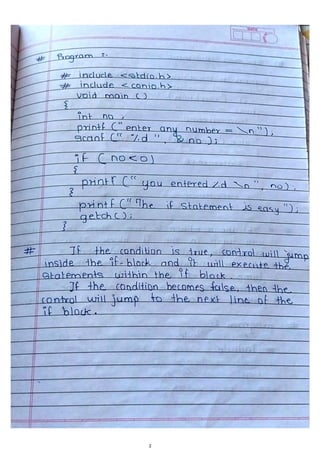 # Program :-
# include <stdio.h>
# include <conio.h>
void main ()
{
int no ;
printf ("enter any number = \n");
scanf (" %d ", & no );
if ( no < 0 )
{
printf (" you entered %d \n ", no).
}
printf (" The if statement is easy ");
getch ();
}
# If the condition is true, control will jump
inside the if-block and it will execute the
statements within the if block.
If the condition becomes false, then the
control will jump to the next line of the
if block.
2